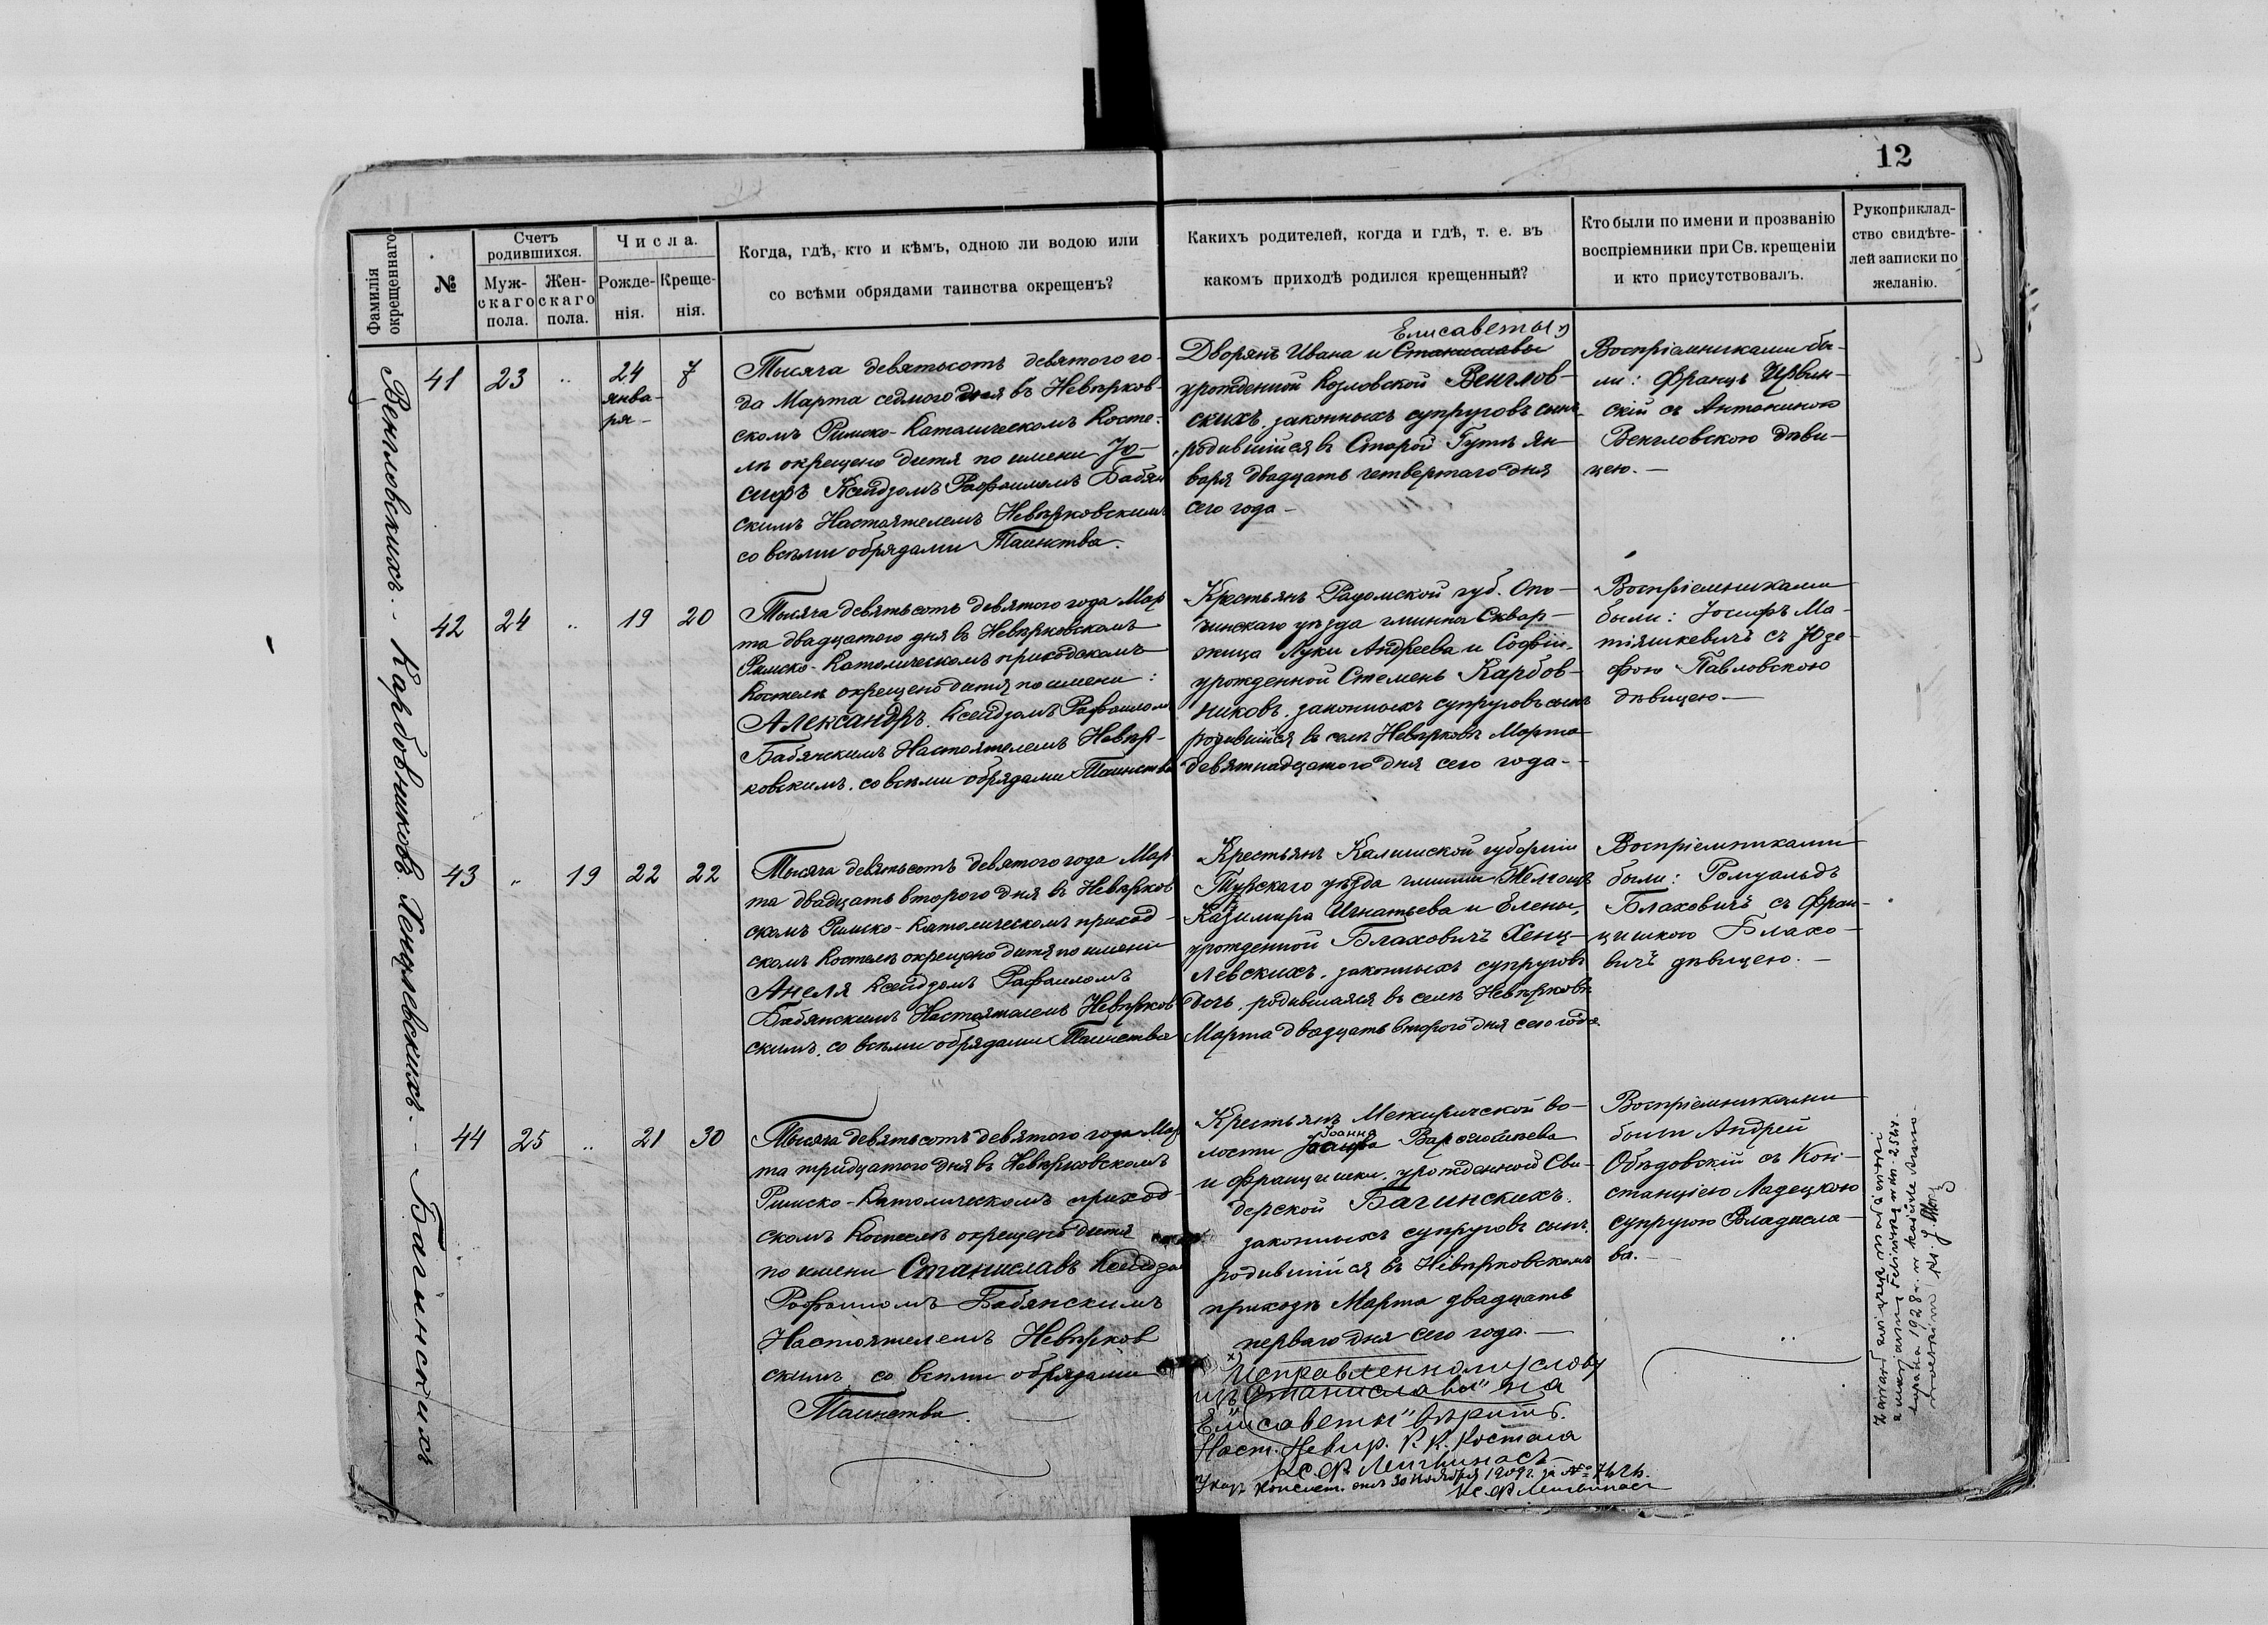 12
Фамилія
окрещеннаго
№
Счетъ
родившихся.
Муж-
скаго
пола.
Жен-
скаго
пола.
Числа.
Рожде-
нія.
Креще-
нія.
Когда, гдѣ, кто и кѣмъ, одною ли водою или
со всѣми обрядами таинства окрещенъ?
Какихъ родителей, когда и гдѣ, т. е. въ
какомъ приходѣ родился крещенный?
Кто были по имени и прозванію
воспріемники при Св. крещеніи
и кто присутствовалъ.
Рукоприклад-
ство свидѣте-
лей записки по
желанію.
Венгловскихъ. - Карбовниковъ Хенцлевскихъ. - Багинскихъ
41 23 " 24 7
янва-
ря-
Тысяча девятьсотъ девятого го-
да Марта седмого дня въ Невѣрков-
скомъ Римско-Католическомъ Косте-
лѣ окрещено дитя по имени Іо-
сифъ Ксендзомъ Рафаиломъ Бабян
скимъ Настоятелемъ Невѣрковскимъ
со всѣми обрядами Таинства.
Елисаветы х)
Дворянъ Ивана и Станиславы
урожденной Козловской Венглов-
скихъ законныхъ супруговъ сынъ
родившійся въ Старой Гутѣ Ян-
варя двадцать четвертаго дня
сего года-
Воспріемниками бы-
ли: Францъ Церв
скій съ Антониною
Венгловскою дѣви-
цею.-
42 24 " 19 20
Тысяча девятьсотъ девятого года Мар
та двадцатого дня въ Невѣрковскомъ
Римско-Католическомъ приходскомъ
Костелѣ окрещено дитя по имени:
Александръ. Ксендзомъ Рафаиломъ
Бабянскимъ Настоятелемъ Невѣр-
ковскимъ. со всѣми обрядами Таинства
Крестьянъ Радомской губ. Опо-
чинскаго уѣзда гмины Сквар-
Луки Андреева и Софіи,
урожденной Стемень Карбов-
никовъ. законныхъ супруговъ сынъ
родившійся въ селѣ Невѣрковъ Марта
девятнадцатого дня сего года-
Воспріемниками
были: Іосифъ Ма-
тіяшкевичъ съ Юзе-
фою Павловскою
дѣвицею.-
43 " 19 22 22
Тысяча девятьсотъ девятого года Мар
та двадцать второго дня въ Невѣрков
скомъ Римско-Католическомъ приход-
скомъ Костелѣ окрещено дитя по имени
Анеля Ксендзомъ Рафаиломъ
Бабянскимъ Настоятелемъ Невѣрков
скимъ, со всѣми обрядами Таинства
Крестьянъ Калишской губерніи
Турскаго уѣзда гмины
Казимира Игнатьева и Елены,
урожденной Блаховичъ Хенц-
левскихъ. законныхъ супруговъ
дочь. родившаяся въ селѣ Невѣрковъ
Марта двадцать второго дня сего года
Воспріемниками
были: Ромуальдъ
Блаховичъ съ Фран-
цишкою Блахо-
вичъ дѣвицею.-
44 25 " 21 30
Тысяча девятьсотъ девятого года Мар
та тридцатого дня въ Невѣрковскомъ
Римско-Католическомъ приход-
скомъ Костелѣ окрещено дитя
по имени Станиславъ Ксендзо
Рафаиломъ Бабянскимъ
Настоятелемъ Невѣрков
скимъ со всѣми обрядами
Таинства.
Крестьянъ Межиричской во-
Іоанна
лости
и Францишки, урожденной Сви-
дерской Багинскихъ.
законныхъ супруговъ сынъ.
родившійся въ Невѣрковскомъ
приходѣ Марта двадцать
перваго дня сего года.-
х) Исправленному слову
изъ "Станиславы" на
"Елисаветы" вѣрить.
Наст. Невир. Р. К. Костела
Кс.
Указъ Консист. отъ 30 Ноября 1909 г. за №
Воспріемниками
были Андрей
Обѣдовскій съ Кон-
станціею Ладецкою
супругою Владисла-
ва.-
1928 r. w kościele